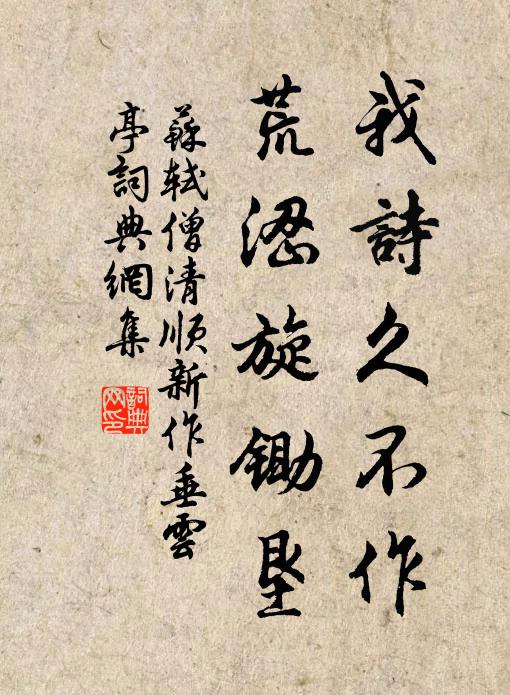 我詩久不作
荒澀旋鋤墾
蘇軾僧清順新作垂雲
亭詞典網集
詞典网印